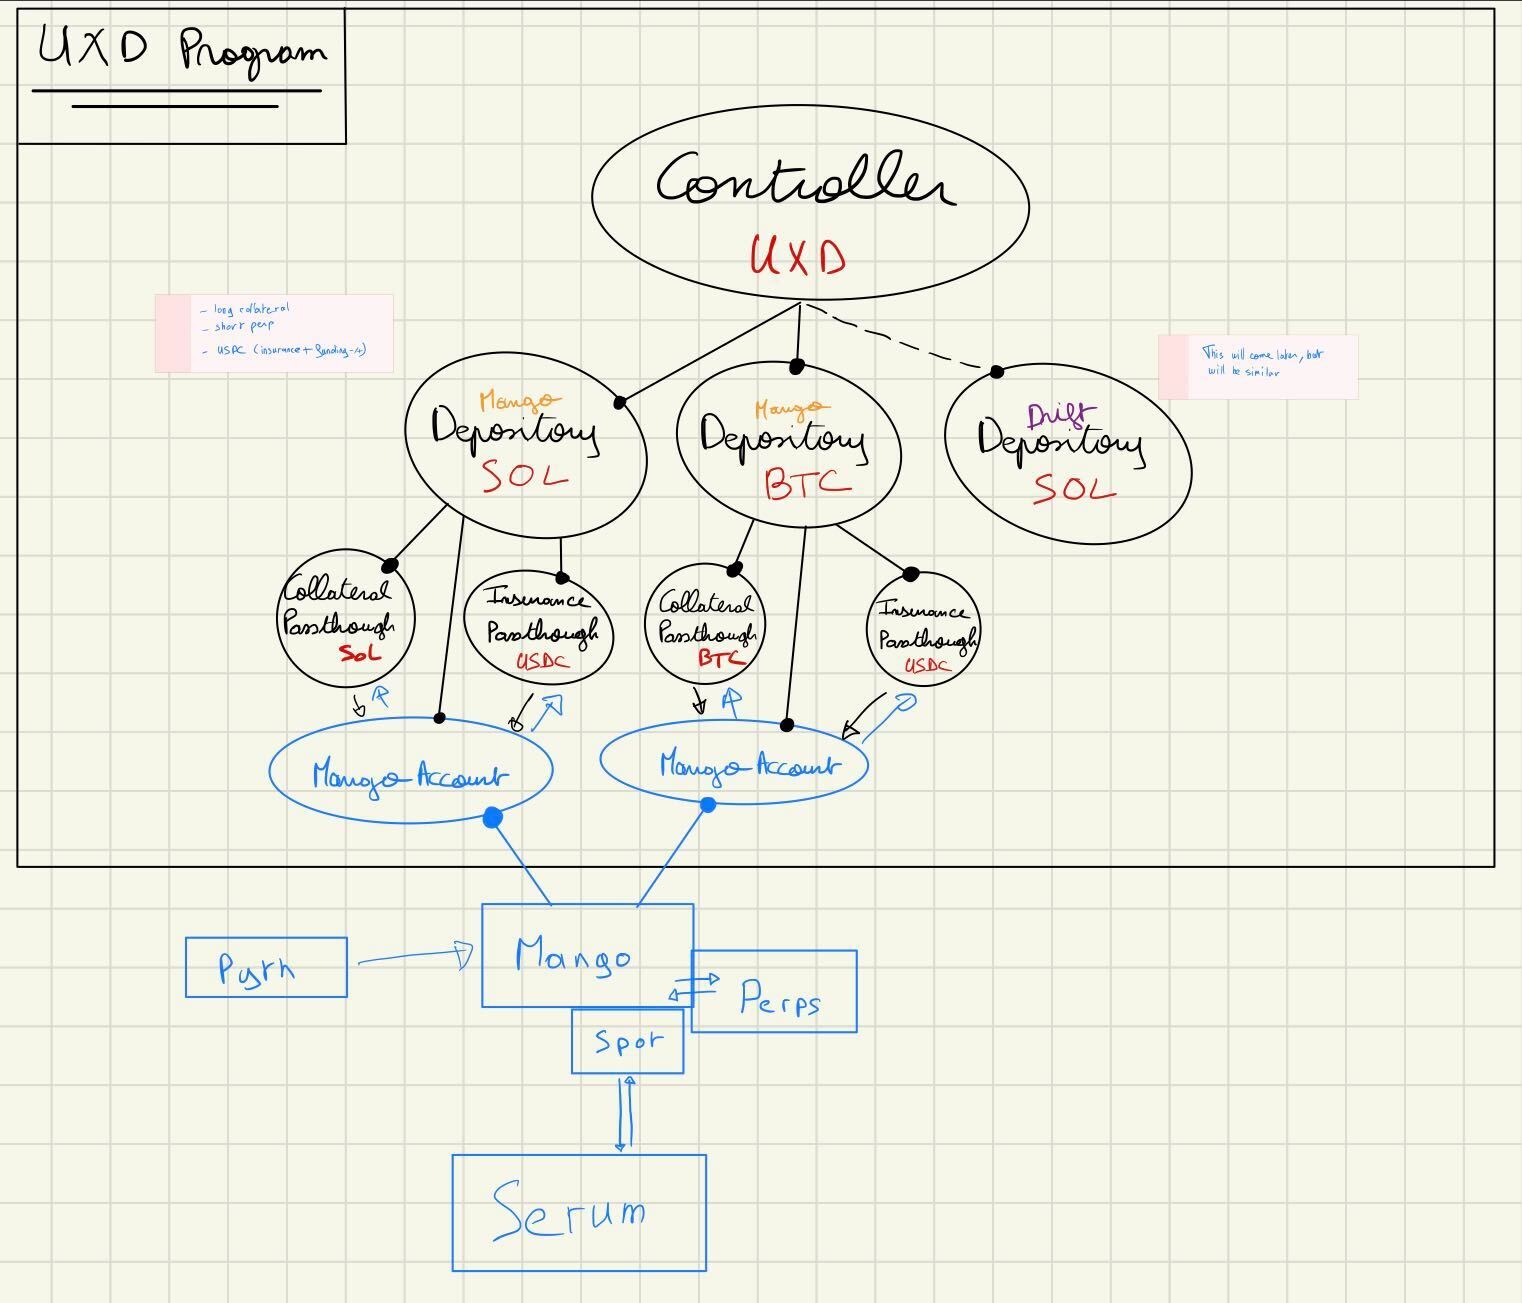 UXD Program
Controller
UXD
- long collateral
- short perp
- USDC (insurance + funding -/+)
This will come later, but
will be similar
Mango
Depository
SOL
Mango
Depository
BTC
Drift
Depository
SOL
Collateral
Passthough
SOL
Insurance
Passthough
USDC
Collateral
Passthough
BTC
Insurance
Passthough
USDC
Mango Account
Mango Account
Pyth
Mango
Perps
Spot
Serum